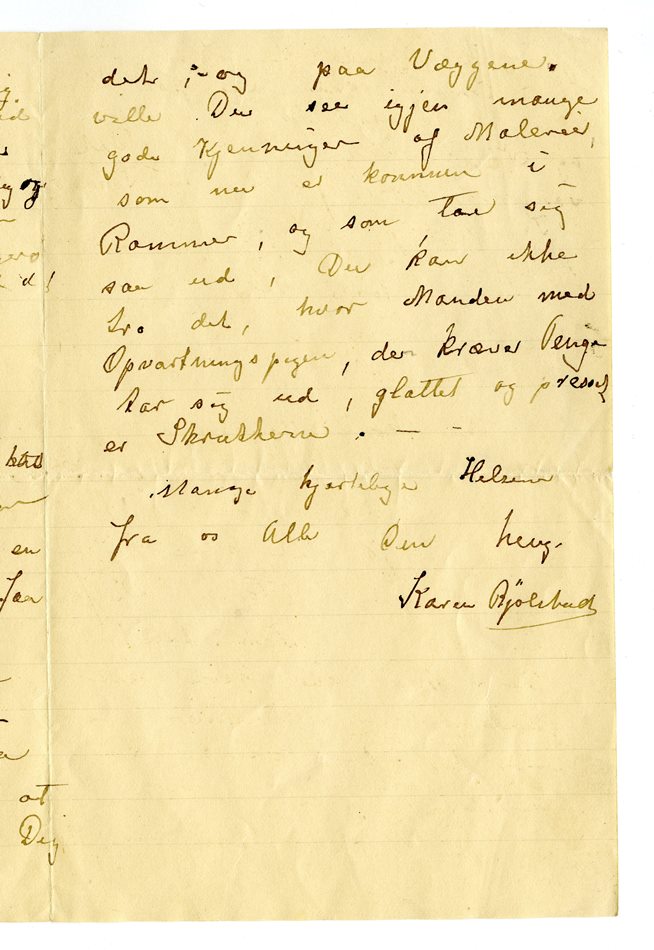 det ;- og paa Væggene.
vilde Du see igjen mange
gode Kjenninger af Malerier,
som nu er kommen i
Rammer, og som tar sig
saa ud, Du kan ikke
tro det, hvor Manden med
Opvartningspigen, der kræver Penge
tar sig ud, glattet og presset
er Skrukkerne. — —
Mange hjertelige Helsener
fra os Alle Din heng.
Karen Bjölstad
og
d!
en
Jaa
at
Dig